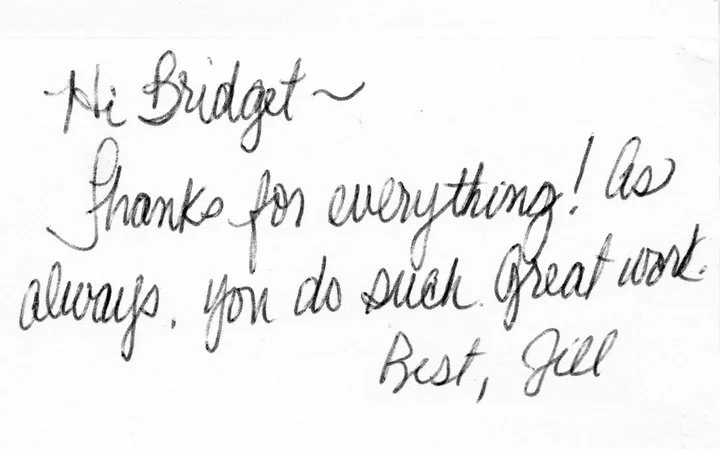 Hi Bridget ~
Thanks for everything! As
always, you do such great work.
Best, Jill